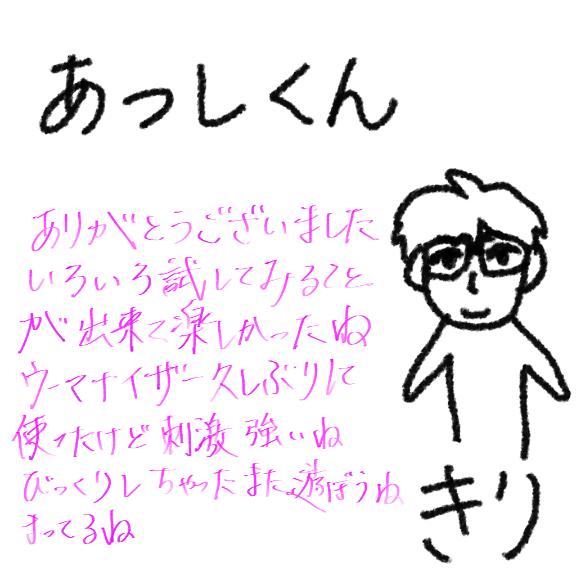 あっしくん
ありがとうございました
いろいろ試してみること
が出来て楽しかったね
ウーマナイザー久しぶりに
使ったけど刺激強いね
びっくりしちゃったまた遊ぼうね
まってるね
きり